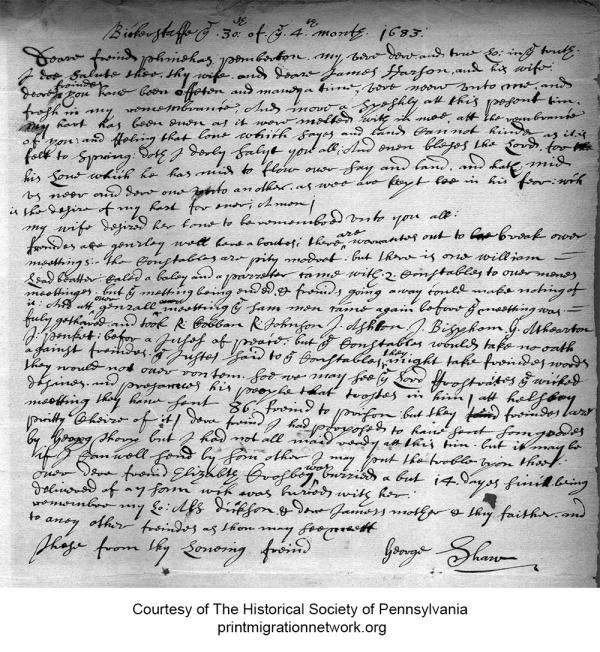 Bickerstaffe ye 30th of ye 4th month 1683:
Deare freind phinehas pemberton my vere dere and true Lo: in ye truth
I doe salute thee, thy wife and deare James Harson, and his wife
deare freinds you have been offeten and maney a time, vere neere vnto me, and
fresh in my remembrance, And now a freshly att this pesent tim
my hart has been euen as it were melted with in mee, att the rembrance
of you: and ffeling that loue which sayes and lands Cannot hinder as it is
felt to spring: doth I derly salut you all; And euen bleses the Lord, for
his Loue which he has mid to flow ouer say and land, and hath mid
vs neer and dere one vnto another, as wee are keept lee in his feor: wch
is the desire of my hart for euer, Amen;
my wife desired her loue to be remembred vnto you all:
freindes are genrley well here aboutes; there are warrantes out to break ouer
meettings: the Constables are prity modret: but there is one william
Leadbeatter Caled a baley and a parreter came with 2 Constables to ouer menes
meettinges, but ye metting being ended, & freinds going away could make nothing of
it: And att our genrall meetting ye sam men came again before ye meetting was
fuly gethered and took R: Cobban R: Johnson J: Ashton J: Bispham G: Atherton
J: penket: before a Juses of peare, but ye Constables woulds take no oath
against freindes, ye Justes said to ye Constables they might take freindes words
they would not ouer ron tem: soe we may see ye Lord ffrostrates ye wicked
desines, and presarues his people that trostes in him; att helsbey
meetting they have sent 86: freind to prison but they freindes are
pritty Cheire of it; dere freind I had porposed to have sent som
by Georg Shory but I had not all maid rendy att this tim: but it may be
if I Can well send by som other I may put the troble vpon thee:
ouer dere freind Elizabth Crosbey was burried a but 14: days since being
deliuered of a son wch was buried with her:
remembre my Lo: Als Dickson & dere Jameses mother & thy faither, and
to anoy other freindes as thou may see meett
these from thy Loueing freind George Shaw
Courtesy of The Historical Society of Pennsylvania
printmigrationnetwork.org